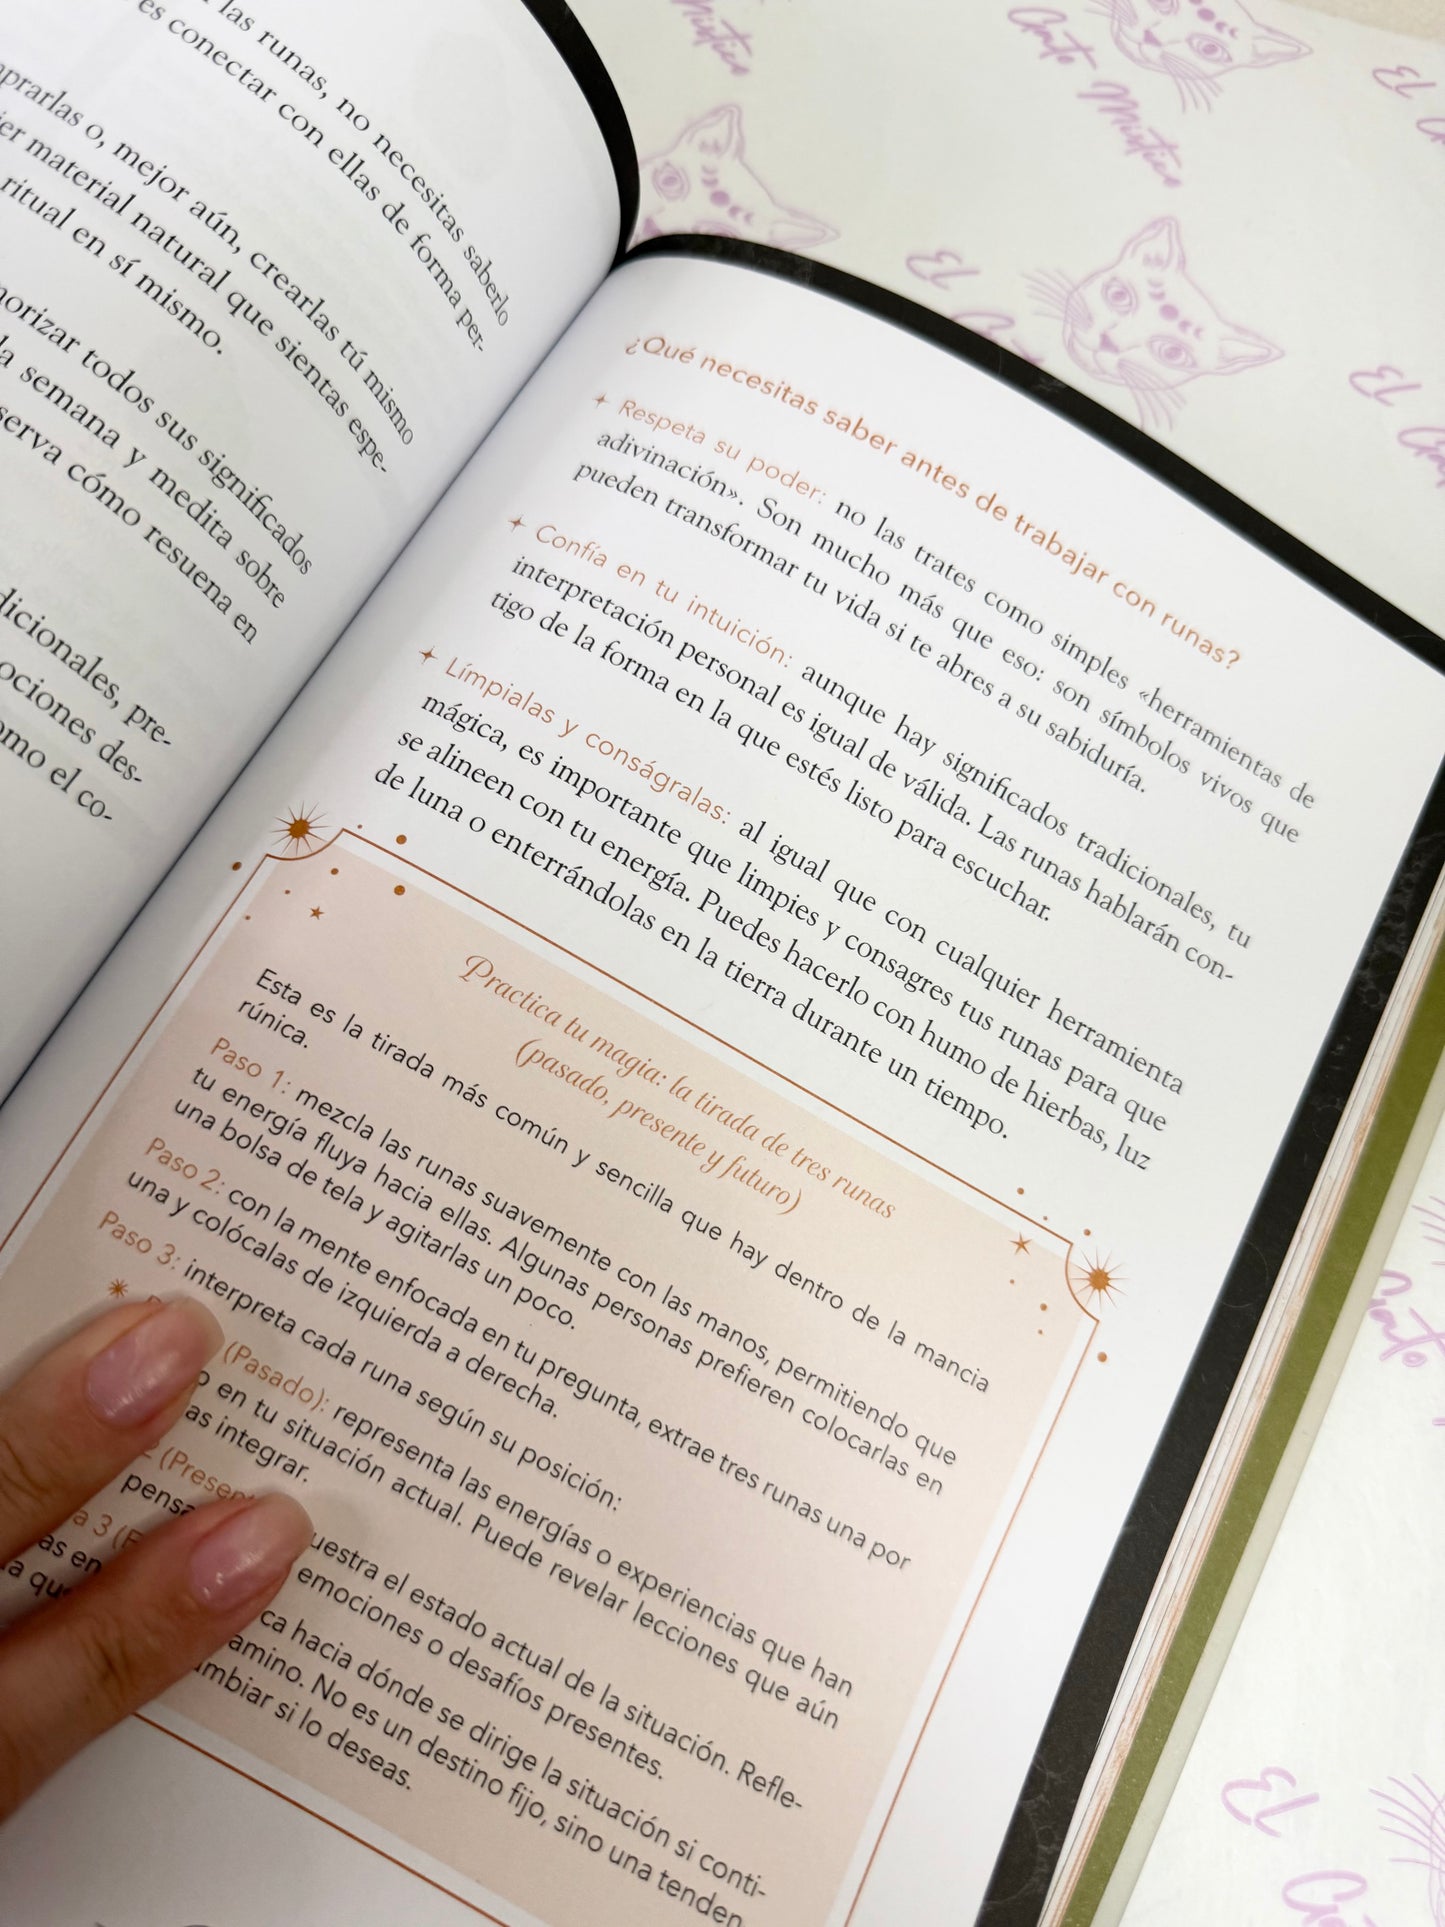 las runas, no necesitas saberlo
es conectar con ellas de forma per-
o, mejor aún, crearlas tú mismo
material natural que sientas espe-
ritual en sí mismo.
todos sus significados
la semana y medita sobre
cómo resuena en
pre-
des-
el co-
¿Qué necesitas saber antes de trabajar con runas?
Respeta su poder: no las trates como simples «herramientas de
adivinación». Son mucho más que eso: son símbolos vivos que
pueden transformar tu vida si te abres a su sabiduría.
Confía en tu intuición: aunque hay significados tradicionales, tu
interpretación personal es igual de válida. Las runas hablarán con-
tigo de la forma en la que estés listo para escuchar.
Límpialas y conságralas: al igual que con cualquier herramienta
mágica, es importante que limpies y consagres tus runas para que
se alineen con tu energía. Puedes hacerlo con humo de hierbas, luz
de luna o enterrándolas en la tierra durante un tiempo.
Practica tu magia: la tirada de tres runas
(pasado, presente y futuro)
Esta es la tirada más común y sencilla que hay dentro de la mancia
rúnica.
Paso 1: mezcla las runas suavemente con las manos, permitiendo que
tu energía fluya hacia ellas. Algunas personas prefieren colocarlas en
una bolsa de tela y agitarlas un poco.
Paso 2: con la mente enfocada en tu pregunta, extrae tres runas una por
una y colócalas de izquierda a derecha.
Paso 3: interpreta cada runa según su posición:
(Pasado): representa las energías o experiencias que han
en tu situación actual. Puede revelar lecciones que aún
integrar.
2 el estado actual de la situación. Refle-
emociones o desafíos presentes.
3 hacia dónde se dirige la situación si conti-
en No es un destino fijo, sino una
si lo deseas.
Místico
Gato Místico
El
El Gato
El
El Gato
Gato
El
Gato